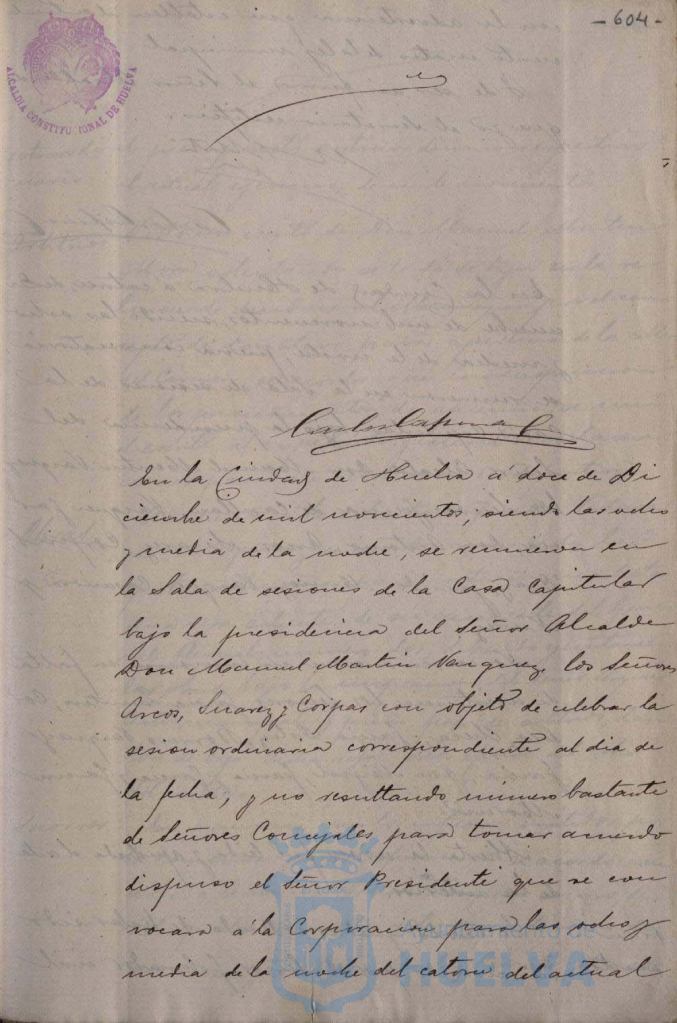 - 604 -
ALCALDIA CONSTITUCIONAL DE HUELVA
En la Ciudad de Huelva á doce de Di
ciembre de mil novecientos, siendo las ocho
y media de la noche, se reunieron en
la Sala de sesiones de la Casa Capitular
bajo la presidencia del Señor Alcalde
Don Manuel Martin Vazquez, los Señores
Arcos, Suarez y Corpas con objeto de celebrar la
sesion ordinaria correspondiente al dia de
la fecha, y no resultando número bastante
de Señores Concejales para tomar acuerdo
dispuso el Señor Presidente que se con
vocara á la Corporacion para las ocho y
media de la noche del catorce del actual
Ayuntamiento de
HUELVA